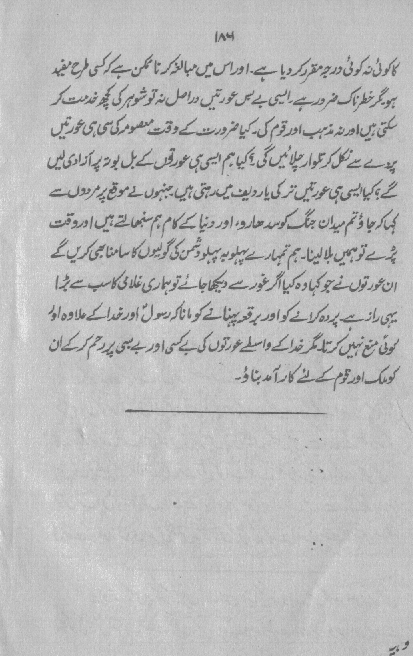 ۱۸۶
کا کوئی نہ کوئی درجہ مقرر کر دیا ہے۔ اور اس میں مبالغہ کرنا ممکن ہے کہ کسی طرح مفید
ہو مگر خطرناک ضرور ہے ایسی بے بس عورتیں دراصل نہ تو شوہر کی کچھ خدمت کر
سکتی ہیں اور نہ مذہب اور قوم کی۔ کیا ضرورت کے وقت معصومہ کی سی ہی عورتیں
پردے سے نکل کر تلوار چلائیں گی؟ کیا ہم ایسی ہی عورتوں کے بل بوتہ پر آزادی لیں
گے؟ کیا ایسی ہی عورتیں ترکی یا ردیف میں رہتی ہیں۔ جنہوں نے موقع پر مردوں سے
کہا کہ جاؤ تم میدان جنگ کو سدھارو، اور دنیا کے کام ہم سنبھالتے ہیں اور وقت
پڑے تو ہمیں بلا لینا۔ ہم تمہارے پہلو بہ پہلو دشمن کی گولیوں کا سامنا بھی کریں گے
ان عورتوں نے جو کہا وہ کیا اگر غور سے دیکھا جائے تو ہماری غلامی کا سب سے بڑا
یہی راز ہے۔ پردہ کرانے کو اور برقعہ پہنانے کو مانا کہ رسولؐ اور خدا کے علاوہ اور
کوئی منع نہیں کرتا۔ مگر خدا کے واسطے عورتوں کی بے کسی اور بے بسی پر رحم کر کے ان
کو ملک اور قوم کے لئے کارآمد بناؤ۔